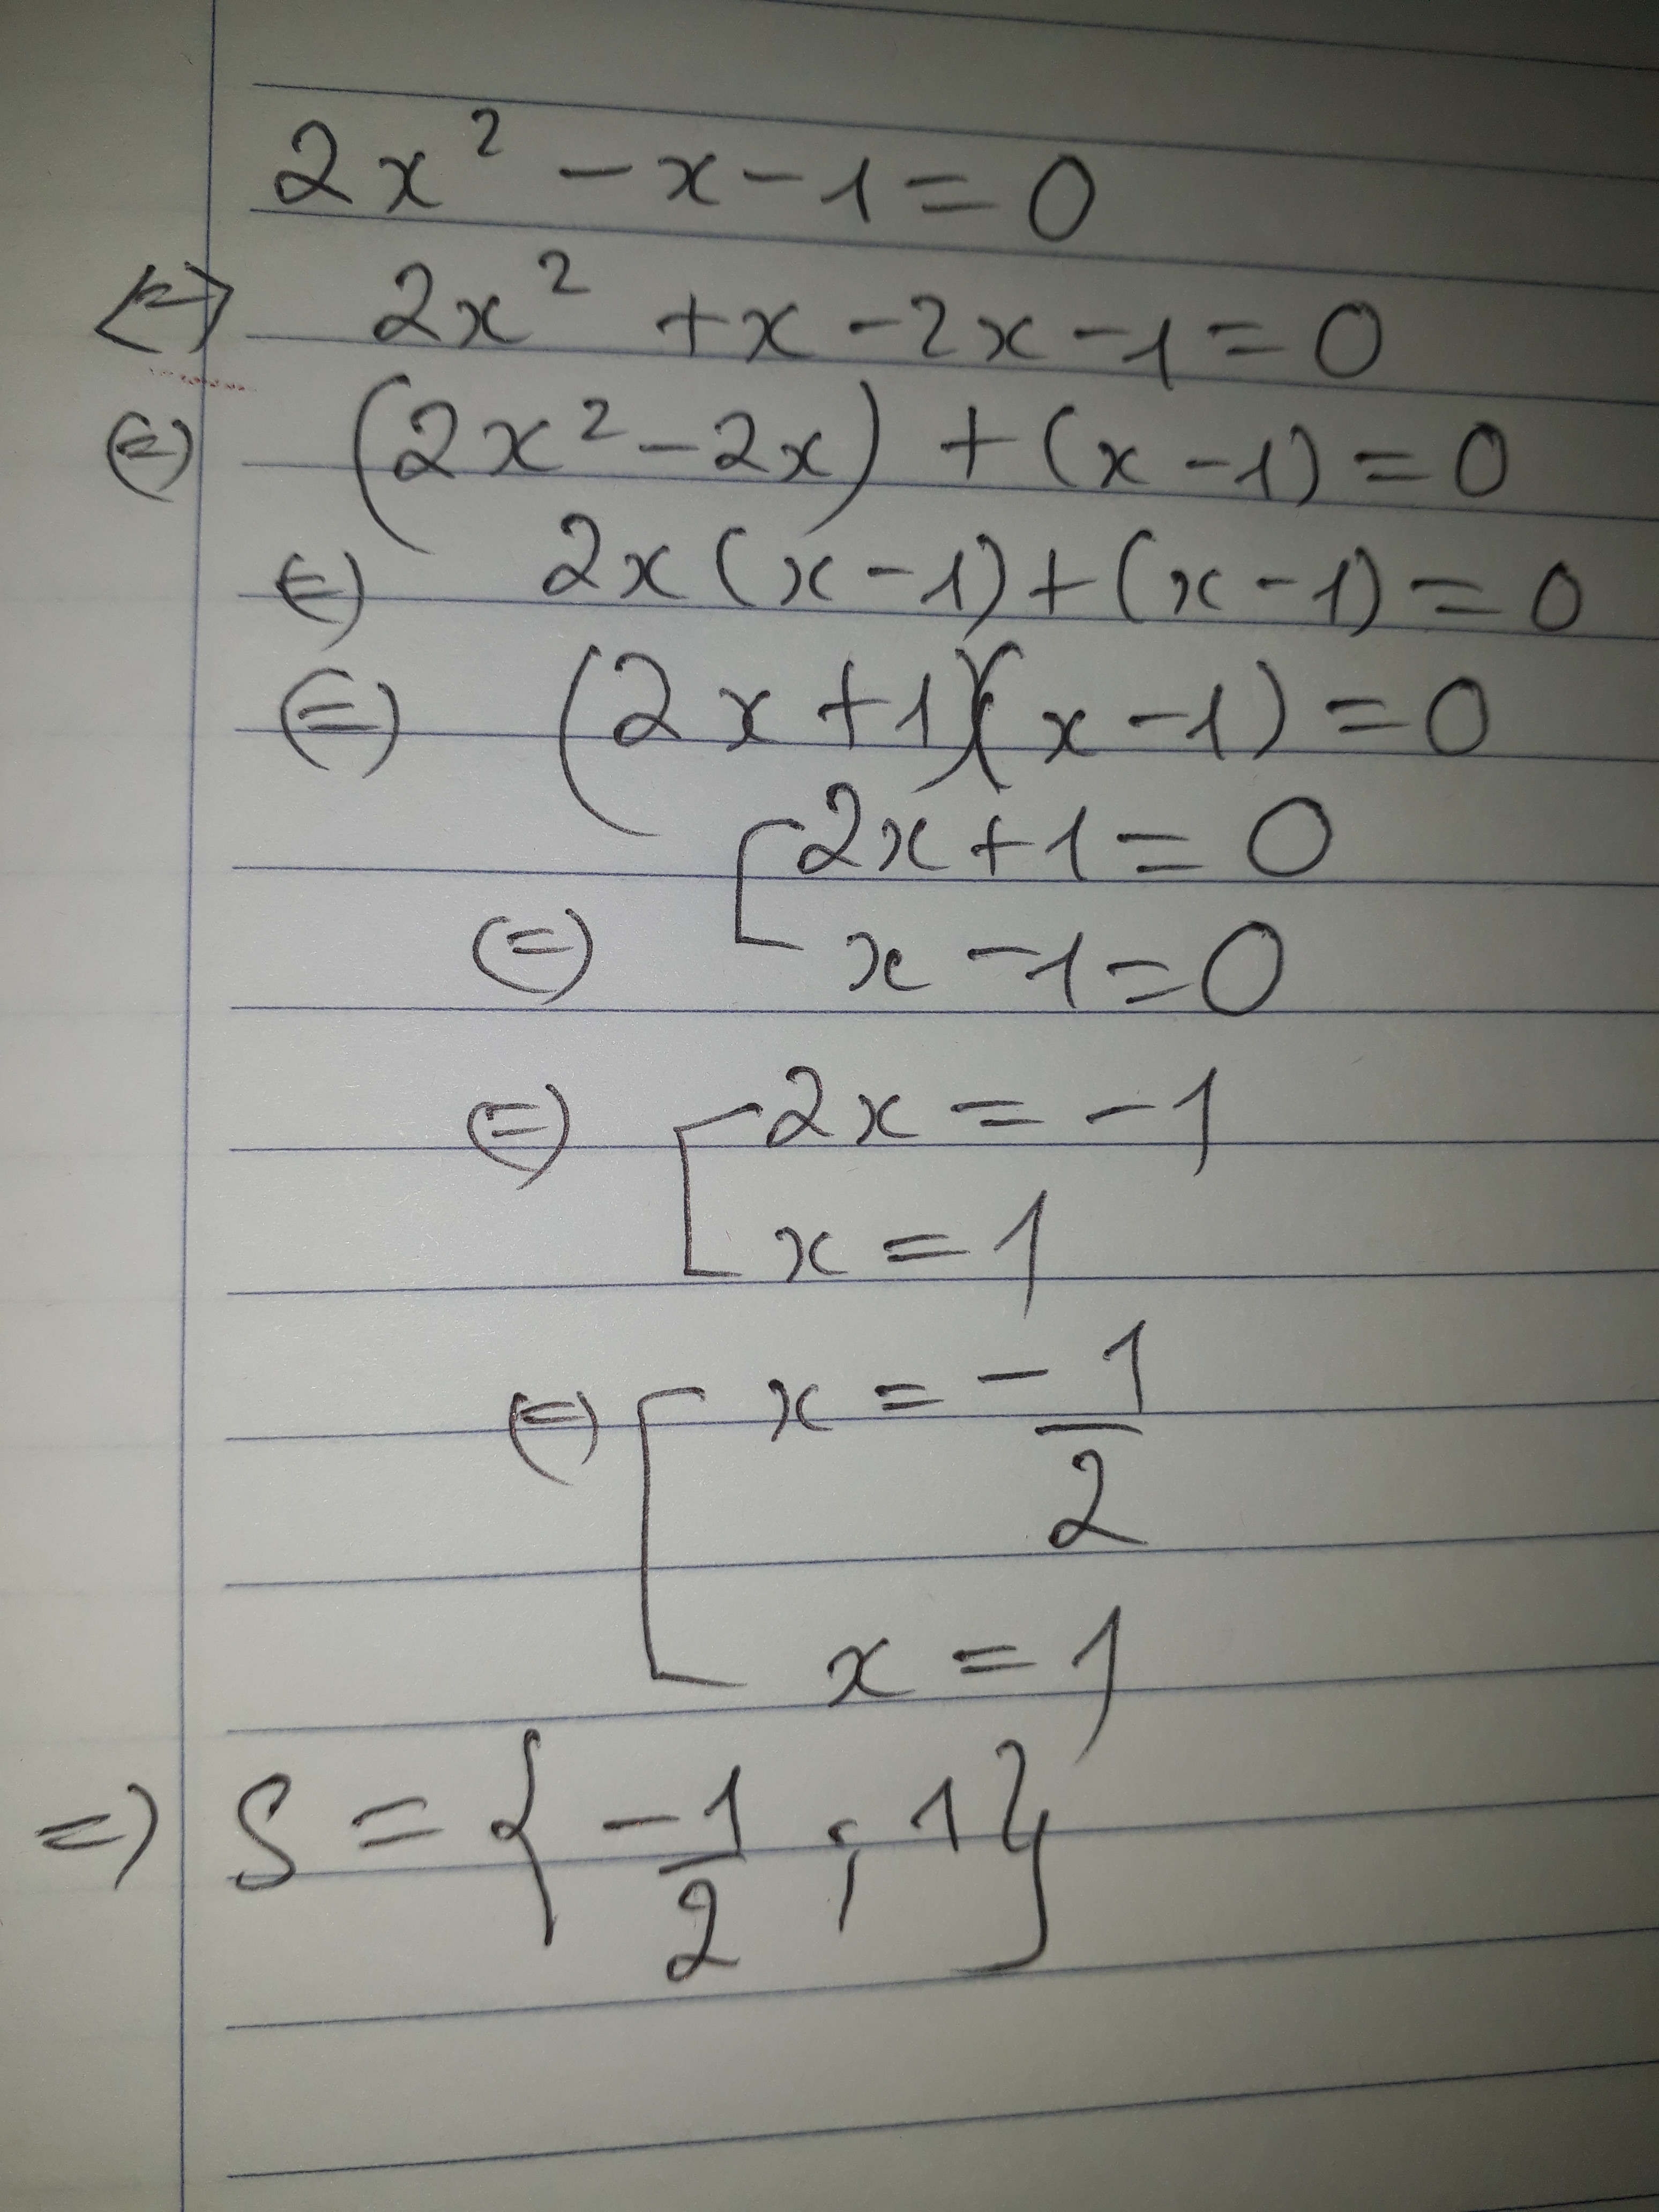 2x² - x - 1 = 0
<=> 2x² + x - 2x - 1 = 0
(=) (2x² - 2x) + (x - 1) = 0
(=) 2x(x - 1) + (x - 1) = 0
(=) (2x + 1)(x - 1) = 0
(=) [ 2x + 1 = 0
x - 1 = 0
(=) [ 2x = -1
x = 1
(=) [ x = -1/2
x = 1
=) S = {-1/2 ; 1}